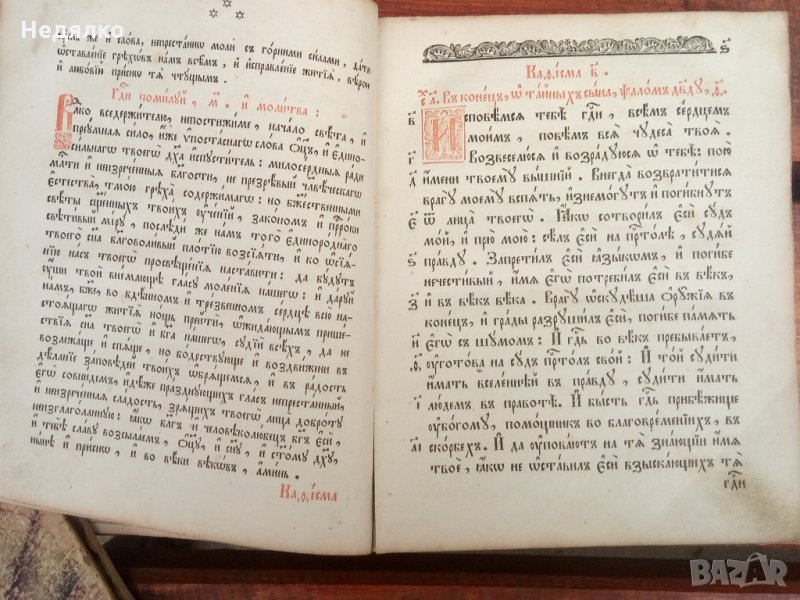 Недялко
же и слова, непрестаннѡ моли с горними силами, дати
ѡставленіе грѣхѡвъ намъ всѣмъ, и҆ и҆справленіе житїѧ̀, вѣрою
и҆ любовїю приснѡ тѧ чтꙋщымъ.
Гдⷭ҇и помилꙋй, м҃. и҆ молитва:
ко вседержителю, непостижиме, начало свѣта, и҆
преꙋмнаѧ сило, и҆же ѵ҆постаснагѡ слова Ѻц҃ъ, и҆ є҆дино-
сильнагѡ твоегѡ дх҃а и҆спꙋстителъ: милосердыѧ ради
млⷭ҇ти и҆ неизреченныѧ благости, не презрѣвый чл҃вѣческагѡ
є҆стества, тмою грѣха содержимагѡ: но бж҃ественными
свѣты сщ҃енныхъ твоихъ ᲂу҆ченїй, закономъ и҆ прⷪ҇рѡки
свѣтивый мірꙋ, послѣди же намъ того є҆динороднаго
твоего сн҃а благоволивый плотїю возсїѧти, и҆ ко ѡ҆сїѧ-
нїю насъ твоего просвѣщенїѧ наставити: да бꙋдꙋтъ
ᲂу҆ши твои внемлющѣ гласꙋ моленїѧ нашегѡ: и҆ дарꙋй
намъ, бж҃е, во бдѣнномъ и҆ трезвенномъ сердцѣ всю на-
стоѧщагѡ житїѧ нощь прейти, ѡ҆жидающымъ прише-
ствїѧ сн҃а твоегѡ и҆ бг҃а нашегѡ, сꙋдїи всѣхъ, да не
возлежаще и҆ спѧще, но бодрствꙋюще и҆ воздвижени въ
дѣланїе заповѣдей твоихъ ѡ҆брѧщемсѧ, и҆ въ радость
є҆гѡ совнидемъ, и҆дѣже празднꙋющихъ гласъ непрестанный,
и҆ неизреченнаѧ сладость, зрѧщихъ твоегѡ лица добротꙋ
неизглаголаннꙋю: ꙗ҆кѡ благъ и҆ человѣколюбецъ бг҃ъ є҆си,
и҆ тебѣ славꙋ возсылаемъ, Ѻц҃ꙋ, и҆ сн҃ꙋ, и҆ ст҃омꙋ дх҃ꙋ,
нынѣ и҆ приснѡ, и҆ во вѣки вѣкѡвъ, а҆минь.
Каѳісма
Каѳісма в҃.
Въ конецъ, ѡ҆ тайныхъ сына, ѱаломъ дв҃дꙋ, ѳ҃.
Исповѣмсѧ тебѣ гдⷭ҇и, всѣмъ сердцемъ
моимъ, повѣмъ всѧ чꙋдеса твоѧ.
Возвеселюсѧ и҆ возрадꙋюсѧ ѡ҆ тебѣ: пою
и҆мени твоемꙋ вышнїй. Внегда возвратитисѧ
врагꙋ моемꙋ вспѧть, и҆знемогꙋтъ и҆ погибнꙋтъ
ѿ лица твоегѡ. Ꙗ҆кѡ сотворилъ є҆си сꙋдъ
мой, и҆ прю мою: сѣлъ є҆си на прⷭ҇толѣ, сꙋдѧй
правдꙋ. Запретилъ є҆си ꙗ҆зыкѡмъ, и҆ погибе
нечестивый, и҆мѧ є҆гѡ потребилъ є҆си въ вѣкъ,
и҆ въ вѣкъ вѣка. Врагꙋ ѡ҆скꙋдѣша ѻ҆рꙋжїѧ въ
конецъ, и҆ грады разрꙋшилъ є҆си, погибе памѧть
є҆гѡ съ шꙋмомъ: И҆ гдⷭ҇ь во вѣкъ пребываетъ,
ᲂу҆готова на сꙋдъ прⷭ҇толъ свой: И҆ той сꙋдити
и҆мать вселеннѣй въ правдꙋ, сꙋдити и҆мать
людемъ въ правотѣ. И҆ бысть гдⷭ҇ь прибѣжище
ᲂу҆богомꙋ, помощникъ во благовременїихъ, въ
скорбехъ. И҆ да ᲂу҆поваютъ на тѧ знающїи и҆мѧ
твое, ꙗ҆кѡ не ѡ҆ставилъ є҆си взыскающихъ тѧ
гдⷭ҇и
BAZAR